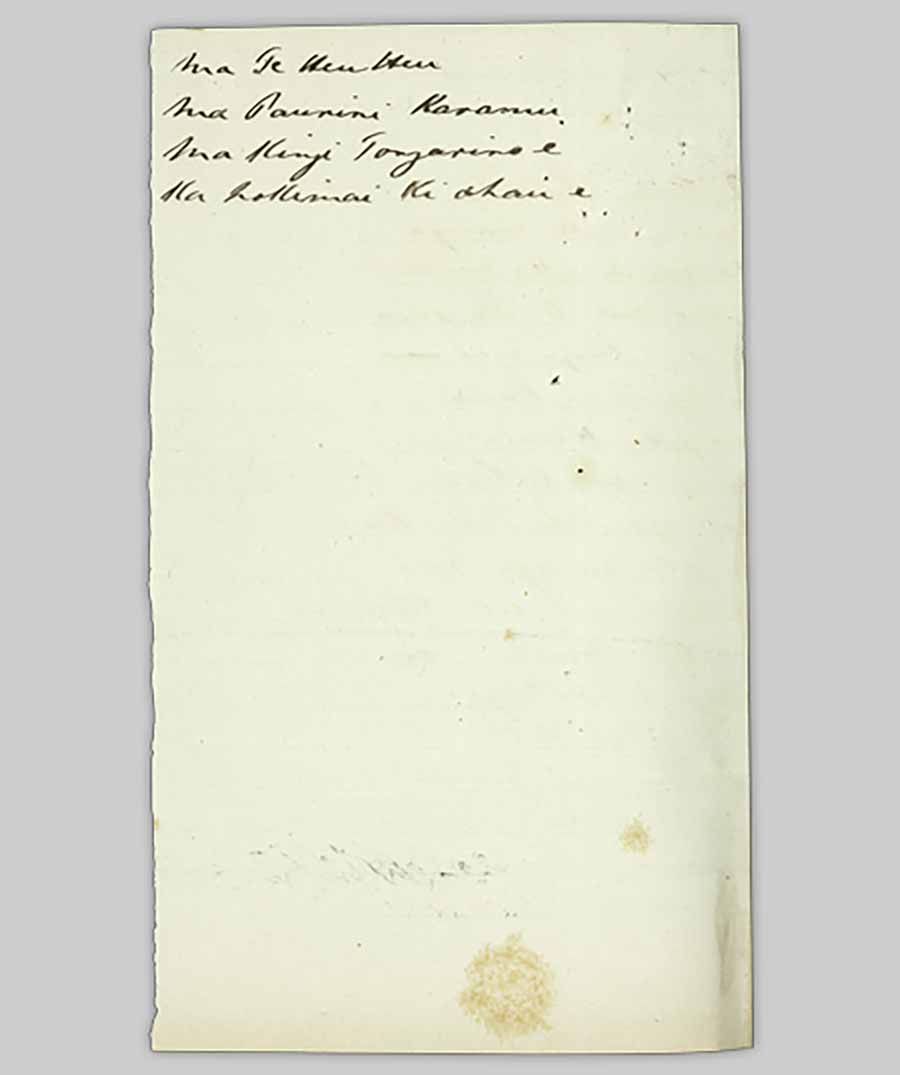 Na Te Heu Heu
Na Paurini Karamu.
Na Kingi Tongariro e
Ka hokimai Ki ohau e